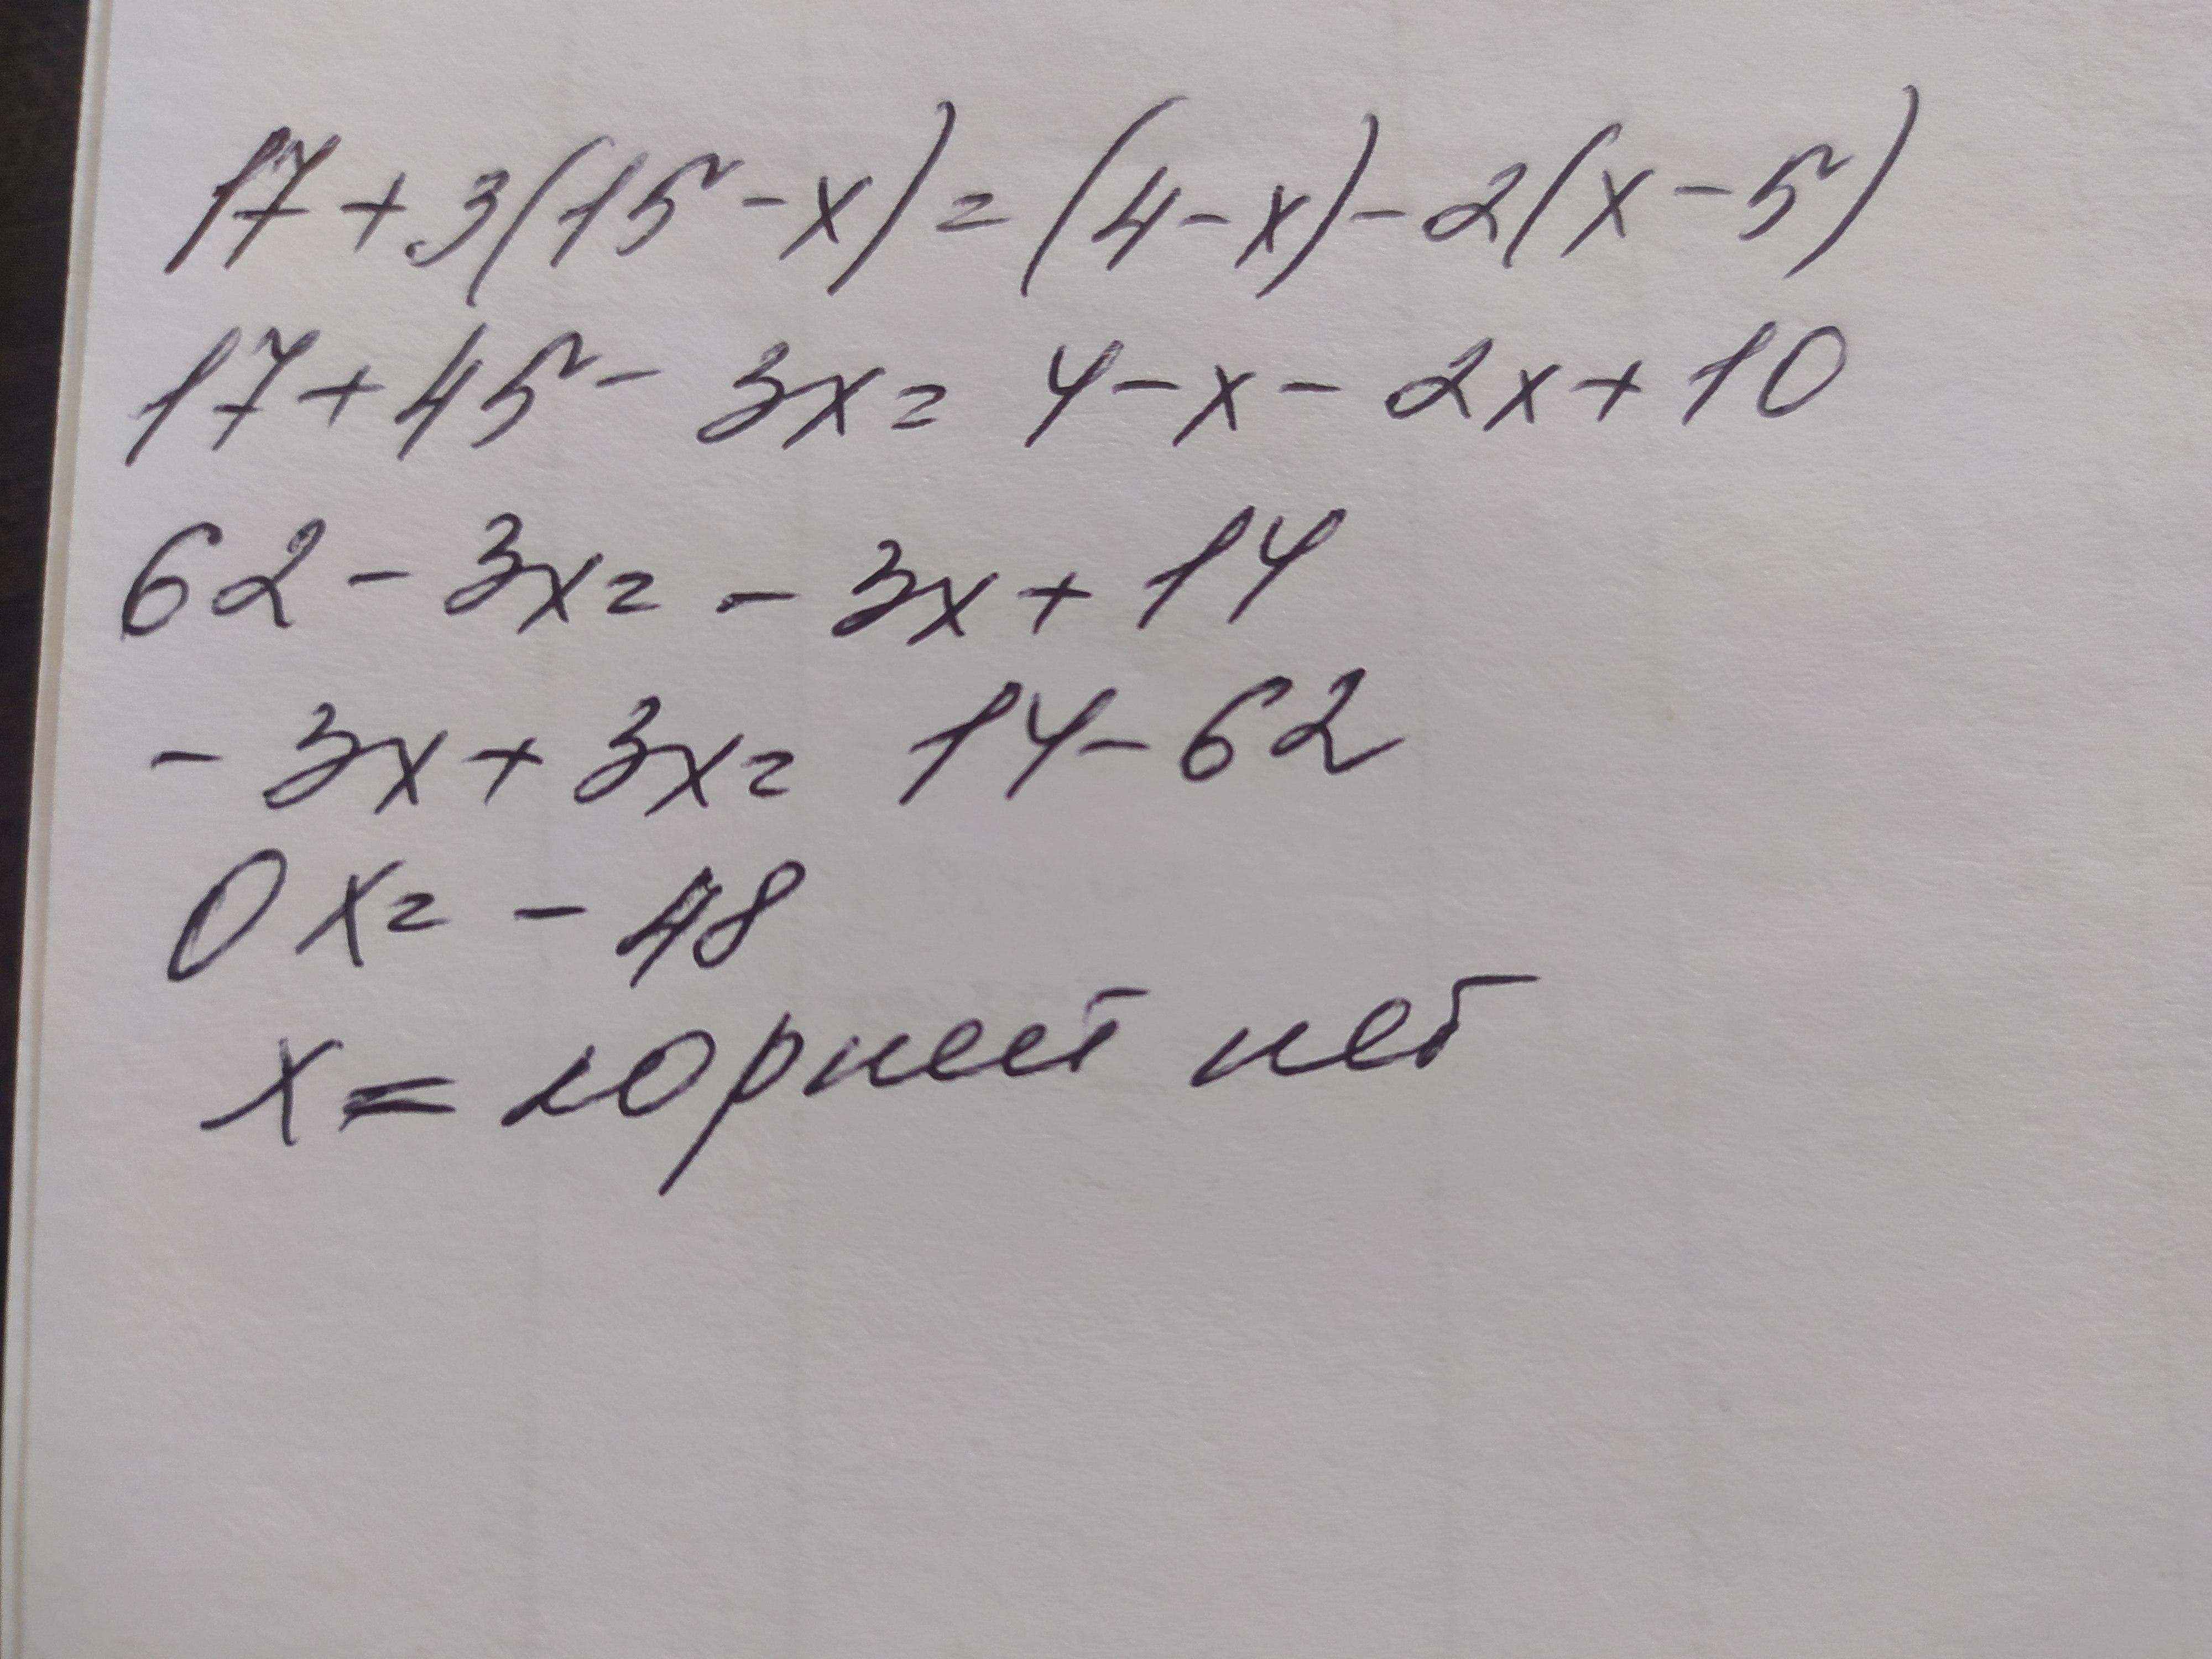 17+3(15-x)=(4-x)-2(x-5)
17+45-3x=4-x-2x+10
62-3x=-3x+14
-3x+3x=14-62
0x=-48
x=корней нет